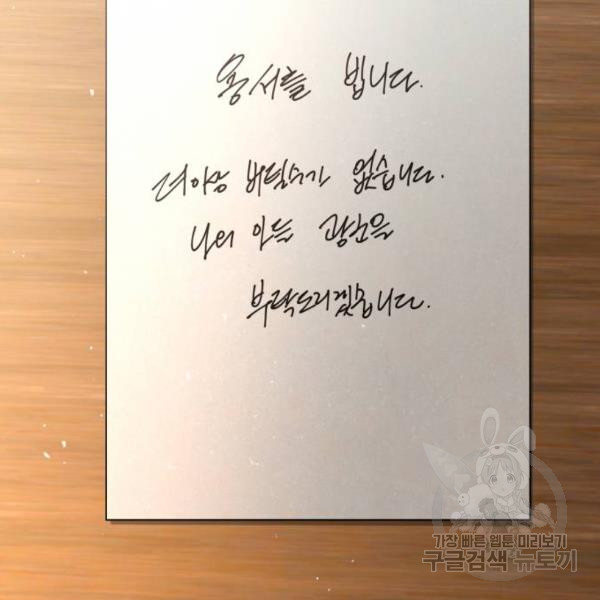 용서를 빕니다.
더이상 버틸수가 없습니다.
나의 아들 광운을
부탁드리겠습니다.
가장 빠른 웹툰 미리보기
구글검색 뉴토끼